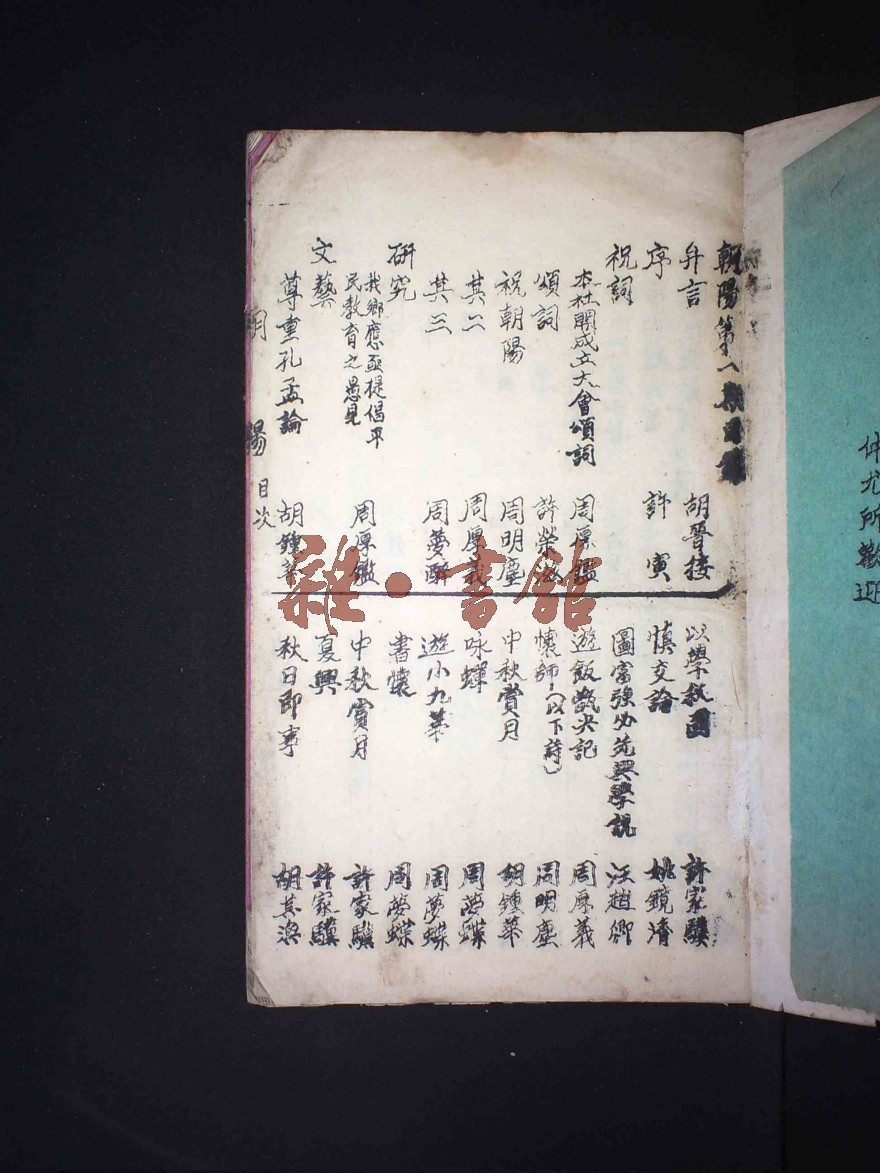 朝陽第一期目錄
弁言 胡晉接
序 許寅
祝詞
本社開成立大會頌詞 周厚鑑
頌詞 許榮
祝朝陽 周明塵
其二 周厚義
其三 周夢蝶
研究
我鄉應亟提倡平
民教育之愚見 周厚鑑
文藝
尊重孔孟論 胡鍾華
朝陽 目次
以學救國 許家騏
慎交論 姚鏡清
圖富強必先興學說 汪趙卿
遊飯甑尖記 周厚義
懷師(以下詩) 周明塵
中秋賞月 胡鍾華
咏蟬 周夢蝶
遊小九華 周夢蝶
書懷 周夢蝶
中秋賞月 許家騏
夏興 許家騏
秋日即事 胡其
仲尤所歡迎
雜·書館